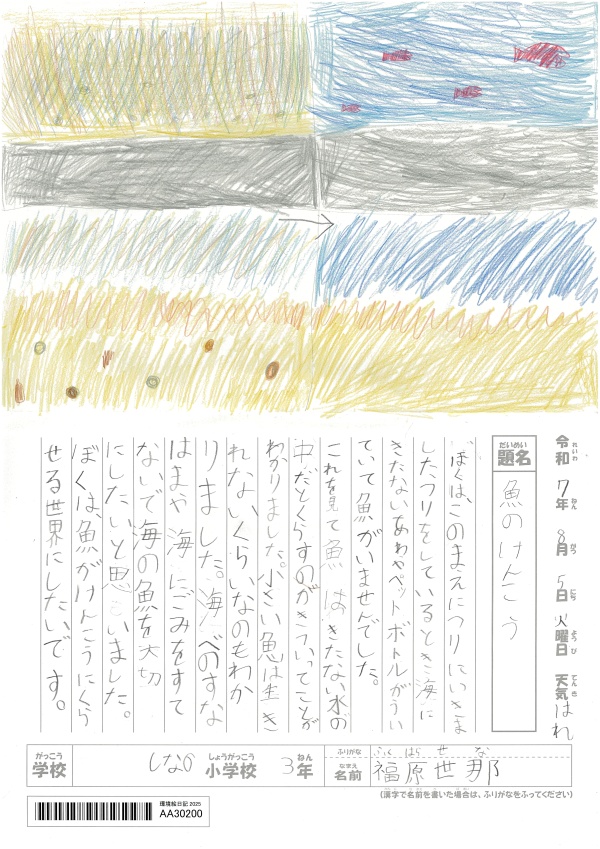 令和7年8月5日火曜日 天気はれ
れいわ ねん がつ にち ようび てんき
だいめい
題名
魚のけんこう
ぼくは、このまえにつりにいきま
したつりをしているとき海に
きたないあわやペットボトルがうい
ていて魚がいませんでした。
これを見て魚はきたない水の
中だとくらすのがきついってことが
わかりました。小さい魚は生き
れないくらいなのもわか
りました。海べのすな
はまや海にごみをすて
ないで海の魚を大切
にしたいと思いました。
ぼくは、魚がけんこうにくら
せる世界にしたいです。
がっこう しょうがっこう ねん
学校 しなの小学校 3年
ふりがな ふくはら せな
なまえ
名前 福原世那
(漢字で名前を書いた場合は、ふりがなをふってください)
環境絵日記 2025
AA30200